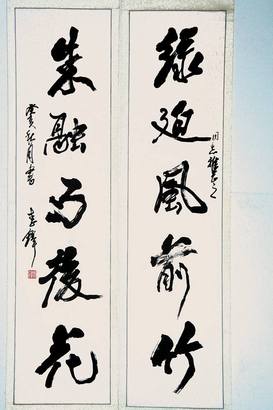 綠迎風前竹
同志雅
朱融雨後花
癸亥秋月書
李鐸